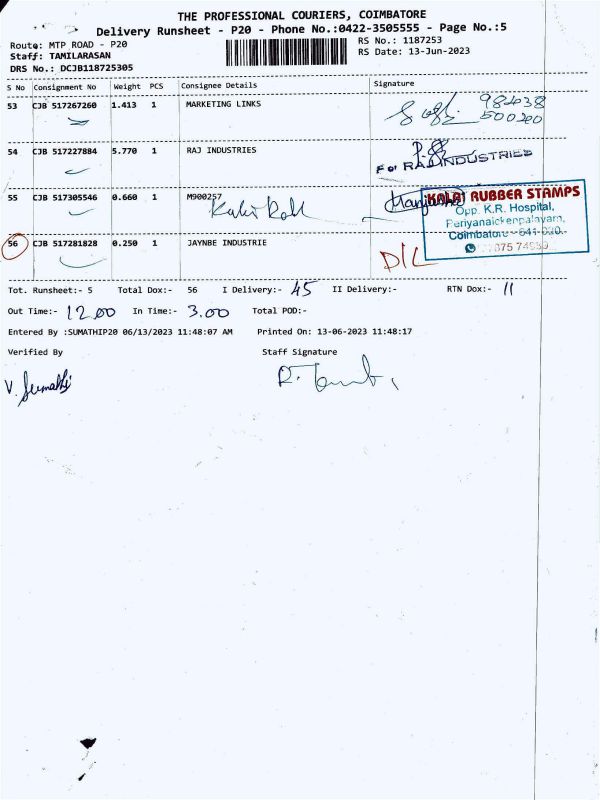 THE PROFESSIONAL COURIERS, COIMBATORE
Delivery Runsheet - P20 - Phone No.:0422-3505555 - Page No.:5
Route: MTP ROAD - P20
RS No.: 1187253
Staff: TAMILARASAN
RS Date: 13-Jun-2023
DRS No.: DCJB118725305
S No Consignment No Weight PCS Consignee Details Signature
53 CJB 517267260 1.413 1 MARKETING LINKS
54 CJB 517227884 5.770 1 RAJ INDUSTRIES
For RAJ INDUSTRIES
55 CJB 517305546 0.660 1 M900257
KALAI RUBBER STAMPS
Opp. K.R. Hospital,
Periyanaickenpalayam,
56 CJB 517281828 0.250 1 JAYNBE INDUSTRIE
D/L
Tot. Runsheet:- 5 Total Dox:- 56 I Delivery:- 45 II Delivery:- RTN Dox:- 11
Out Time:- 12.00 In Time:- 3.00 Total POD:-
Entered By :SUMATHIP20 06/13/2023 11:48:07 AM Printed On: 13-06-2023 11:48:17
Verified By Staff Signature
V. Sumathi